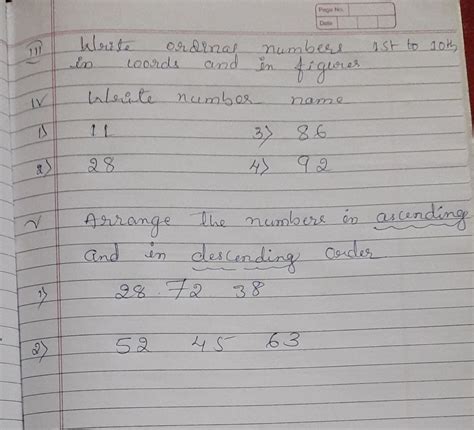 Page No.
Date
III Write ordinal numbers 1st to 10th
in words and in figures
IV Write number name
1) 11 3) 86
2) 28 4) 92
V Arrange the numbers in ascending
and in descending order
1) 28 . 72 38
2) 52 45 63